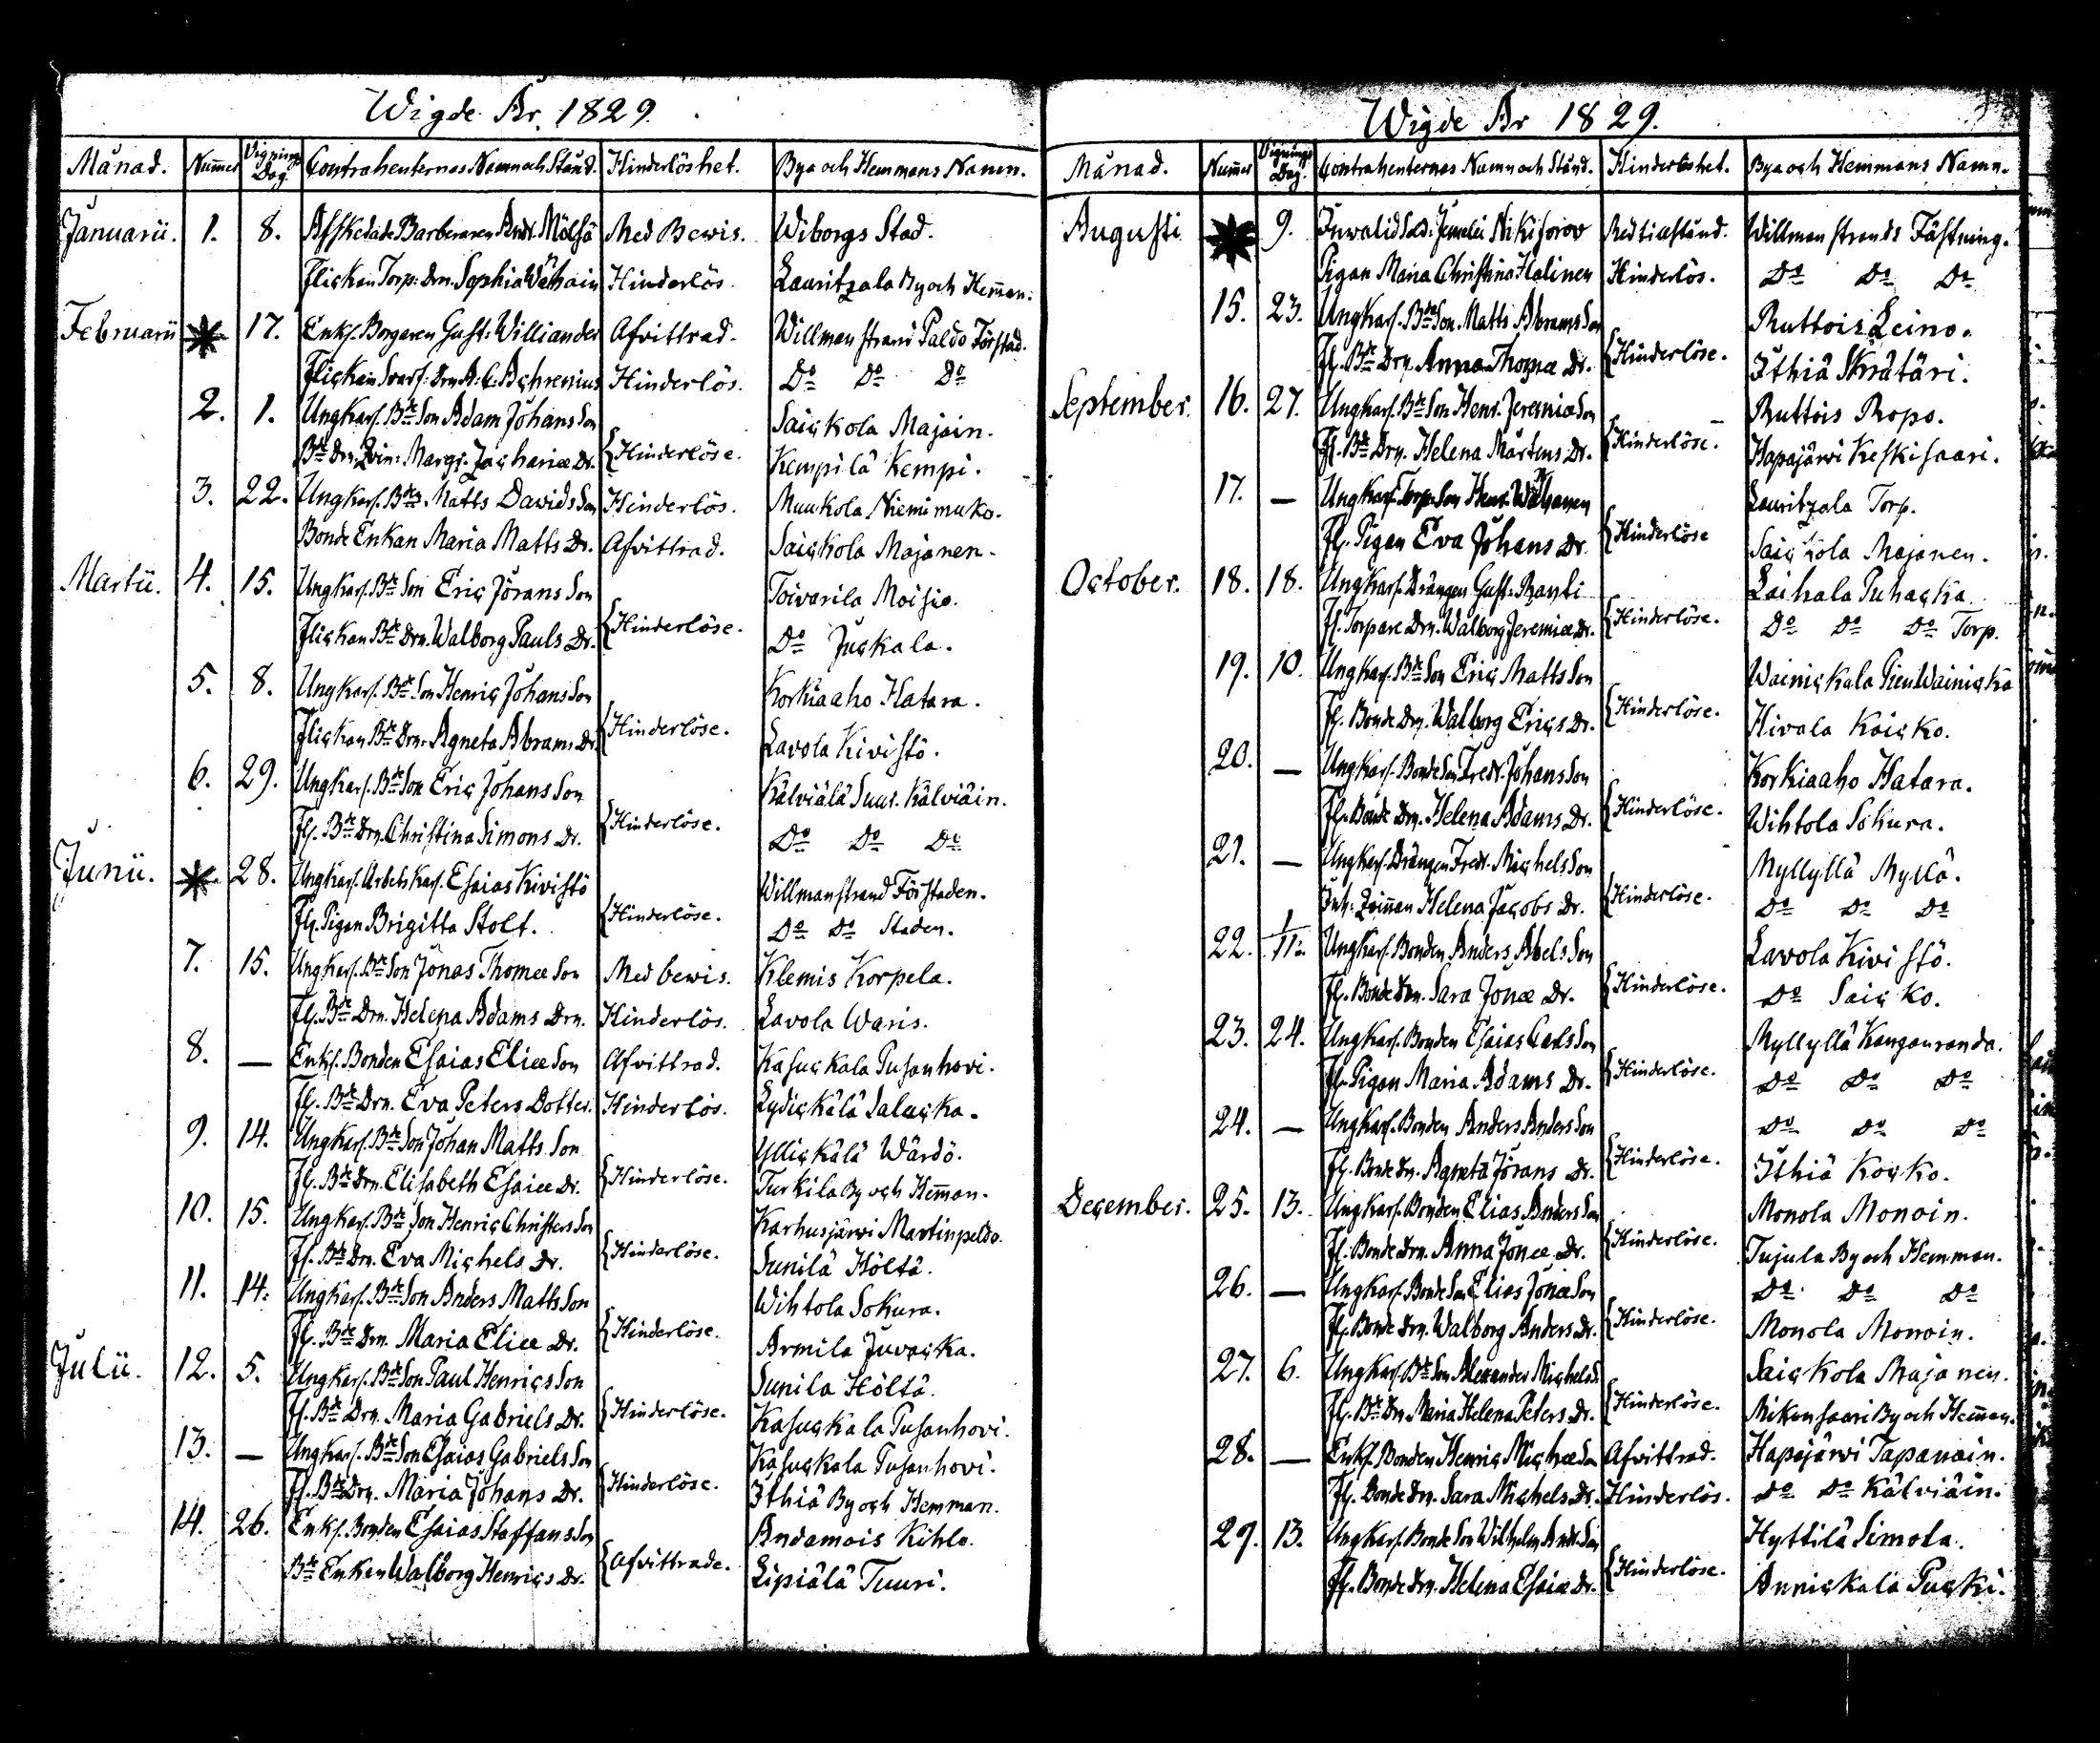 Wigde År 1829.
Månad. Num̅er Vignings Dag. Contrahenternas Namn och Stånd. Hinderlöshet. Bya och Hemmans Namn.
Januarii. 1. 8. Afskedade Barberaren Andr. Mölsä Med Bewis. Wiborgs Stad.
Flickan Torp: Drn. Sophia Wähain Hinderlös. Lauritzala By och Hem̅an.
Februarii * 17. Enkl. Borgaren Gust: Williander Afvittrad. Willmanstrand Paldo Förstad.
Flickan Svarf: Drn A: C: Aghrenius Hinderlös. Do Do Do
2. 1. Ungkarl. Bde Son Adam Johans Son Saickola Majain.
Bde Drn. Qvin: Margr. Zachariæ Dr. {Hinderlöse. Kempilä Kempi.
3. 22. Ungkarl. Bdn. Matts Davids Son Hinderlös. Muukola Niemimuko.
Bonde Enkan Maria Matts Dr. Afvittrad. Saickola Majanen.
Martii. 4. 15. Ungkarl. Bde Son Eric Jörans Son Toivarila Moisio.
Flickan Bde Drn. Walborg Pauls Dr. {Hinderlöse. Do Juckala.
5. 8. Ungkarl. Bde Son Henric Johans Son Korkiaaho Hatara.
Flickan Bde Drn. Agneta Abrams Dr {Hinderlöse. Lavola Kivistö.
6. 29. Ungkarl. Bde Son Eric Johans Son Kälviälä Suur. Kälviäin.
Fl. Bde Drn Christina Simons Dr. {Hinderlöse. Do Do Do
Junii. * 28. Ungkarl. Arbets Karl. Esaias Kivistö Willmanstrand Förstaden.
Fl. Pigan Brigitta Stolt. {Hinderlöse. Do Do Staden.
7. 15. Ungkarl. Bde Son Jonas Thomæ Son Med bewis. Klemis Korpela.
Fl. Bde Drn. Helena Adams Drn. Hinderlös. Lavola Waris.
8. — Enkl. Bonden Esaias Eliæ Son Afvittrad. Kasuckala Pusanhovi.
Fl. Bde Drn. Eva Peters Dotter. Hinderlös. Lydickälä Salucka.
9. 14. Ungkarl. Bde Son Johan Matts Son Ylickälä Wärdö.
Fl. Bde Drn. Elisabeth Esaiæ Dr. {Hinderlöse. Turkila By och Hem̅an.
10. 15. Ungkarl. Bde Son Henric Christers Son Karhusjärvi Martinpeldo.
Fl. Bde Drn. Eva Michels Dr. {Hinderlöse. Sunilä Höltä.
11. 14. Ungkarl. Bde Son Anders Matts Son Wihtola Sokura.
Fl. Bde Drn. Maria Eliæ Dr. {Hinderlöse. Armila Juvacka.
Julii. 12. 5. Ungkarl. Bde Son Paul Henrics Son Sunila Höltä.
Fl. Bde Drn. Maria Gabriels Dr. {Hinderlöse. Kasuckala Pusanhovi.
13. — Ungkarl. Bde Son Esaias Gabriels Son Kasuckala Pusanhovi.
Fl. Bde Drn. Maria Johans Dr. {Hinderlöse. Ithiä By och Hemman.
14. 26. Enkl. Bonden Esaias Staffans Son Andamois Kihlo.
Bde Enkan Walborg Henrics Dr. {Afvittrade. Lipiälä Tuuri.
Wigde År 1829.
Månad. Num̅er Vignings Dag. Contrahenternas Namn och Stånd. Hinderlöshet. Bya och Hemmans Namn.
Augusti * 9. Inwalid Sold: Jemelei Nikiforov Med tillstånd. Willmanstrands Fästning.
Pigan Maria Christina Halinen Hinderlös. Do Do Do
15. 23. Ungkarl. Bde Son. Matts Abrams Son Ruttois Leino.
Fl. Bde Drn. Anna Thomæ Dr. {Hinderlöse. Ithiä Skrätäri.
September. 16. 27. Ungkarl. Bde Son Henr. Jeremiæ Son Ruttois Ropo.
Fl. Bde Drn. Helena Mårtens Dr. {Hinderlöse. Hapajärvi Keskisaari.
17. — Ungkarl. Torp: Son Henr. Wähanen Lauritzala Torp.
Fl. Pigan Eva Johans Dr. {Hinderlöse Saickola Majanen.
October. 18. 18. Ungkarl. Drängen Gust: Ranti Laihala Puhacka
Fl. Torpare Drn. Walborg Jeremiæ Dr. {Hinderlöse. Do Do Do Torp.
19. 10. Ungkarl. Bde Son Eric Matts Son Wainickala Pien Wainicka
Fl. Bonde Drn. Walborg Erics Dr. {Hinderlöse. Hivala Kaicko.
20. — Ungkarl. Bonde Son Fredr. Johans Son Korkiaaho Hatara.
Fl. Bonde Drn. Helena Adams Dr. {Hinderlöse. Wihtola Sokura.
21. — Ungkarl. Drängen Fredr. Michels Son Myllylä Myllä.
Inh: Qvin̅an Helena Jacobs Dr. {Hinderlöse. Do Do Do
22. 1/11. Ungkarl. Bonden Anders Abels Son Lavola Kivistö.
Fl. Bonde Drn. Sara Jonæ Dr. {Hinderlöse. Do Saicko.
23. 24. Ungkarl. Bonden Esaias Carls Son Myllylä Kangasranda.
Fl. Pigan Maria Adams Dr. {Hinderlöse. Do Do Do
24. — Ungkarl. Bonden Anders Anders Son Do Do Do
Fl. Bonde Dr. Agneta Jörans Dr. {Hinderlöse. Ithiä Kocko.
December. 25. 13. Ungkarl. Bonden Elias Anders Son Monola Monoin.
Fl. Bonde Drn. Anna Jonæ Dr. {Hinderlöse. Tujula By och Hemman.
26. — Ungkarl. Bonde Son Elias Jonæ Son Do Do Do
Fl. Bonde Drn. Walborg Anders Dr. {Hinderlöse. Monola Monoin.
27. 6. Ungkarl. Bde Son Alexander Michels S. Saickola Majanen.
Fl. Bde Drn Maria Helena Peters Dr. {Hinderlöse. Mikonsaari By och Hem̅an.
28. — Enkl. Bonden Henric Michels Son Afvittrad. Hapajärvi Tapanain.
Fl. Bonde Drn. Sara Michels Dr. Hinderlös. Do Do Kälviäin.
29. 13. Ungkarl. Bonde Son Wilhelm Andr. Son Hyttilä Simola.
Fl. Bonde Drn. Helena Esaiæ Dr. {Hinderlöse. Annickala Pucki.